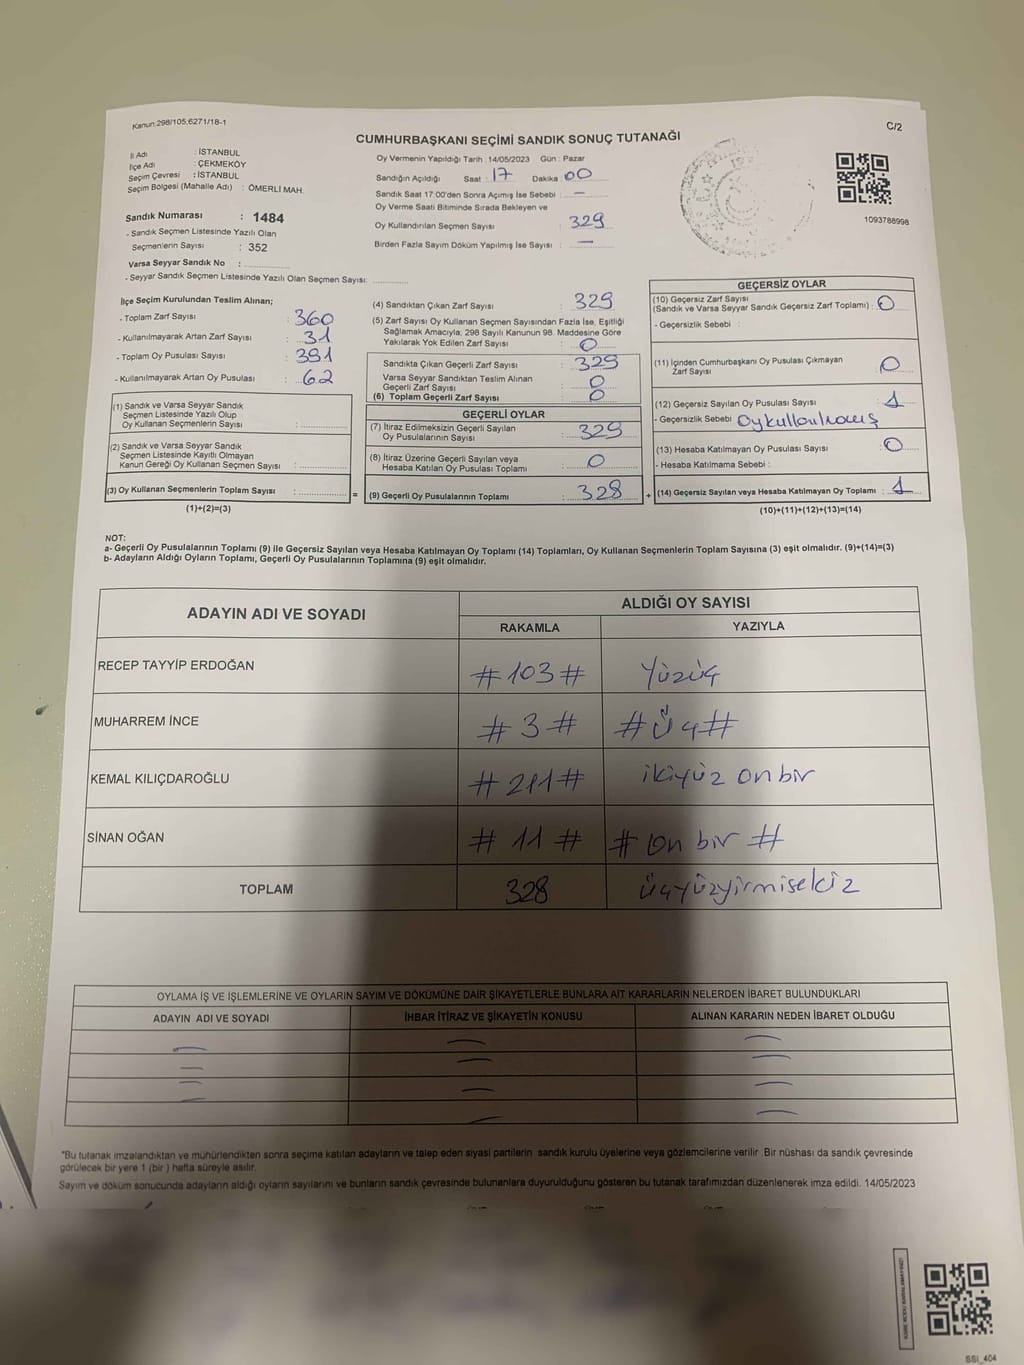 Kanun 298/105,6271/18-1
C/2
CUMHURBAŞKANI SEÇİMİ SANDIK SONUÇ TUTANAĞI
İl Adı : İSTANBUL
İlçe Adı : ÇEKMEKÖY
Seçim Çevresi : İSTANBUL
Seçim Bölgesi (Mahalle Adı) : ÖMERLİ MAH.
Sandık Numarası : 1484
- Sandık Seçmen Listesinde Yazılı Olan
Seçmenlerin Sayısı : 352
Varsa Seyyar Sandık No :
- Seyyar Sandık Seçmen Listesinde Yazılı Olan Seçmen Sayısı:
Oy Vermenin Yapıldığı Tarih : 14/05/2023 Gün : Pazar
Sandığın Açıldığı Saat : 17 Dakika 00
Sandık Saat 17:00'den Sonra Açımış İse Sebebi : —
Oy Verme Saati Bitiminde Sırada Bekleyen ve
Oy Kullandırılan Seçmen Sayısı : 329
Birden Fazla Sayım Döküm Yapılmış İse Sayısı : —
1093788998
İlçe Seçim Kurulundan Teslim Alınan;
- Toplam Zarf Sayısı : 360
- Kullanılmayarak Artan Zarf Sayısı : 31
- Toplam Oy Pusulası Sayısı : 391
- Kullanılmayarak Artan Oy Pusulası : 62
(1) Sandık ve Varsa Seyyar Sandık
Seçmen Listesinde Yazılı Olup
Oy Kullanan Seçmenlerin Sayısı :
(2) Sandık ve Varsa Seyyar Sandık
Seçmen Listesinde Kayıtlı Olmayan
Kanun Gereği Oy Kullanan Seçmen Sayısı :
(3) Oy Kullanan Seçmenlerin Toplam Sayısı : =
(1)+(2)=(3)
(4) Sandıktan Çıkan Zarf Sayısı : 329
(5) Zarf Sayısı Oy Kullanan Seçmen Sayısından Fazla İse, Eşitliği
Sağlamak Amacıyla; 298 Sayılı Kanunun 98. Maddesine Göre
Yakılarak Yok Edilen Zarf Sayısı : 0
Sandıkta Çıkan Geçerli Zarf Sayısı : 329
Varsa Seyyar Sandıktan Teslim Alınan
Geçerli Zarf Sayısı : 0
(6) Toplam Geçerli Zarf Sayısı : 0
GEÇERLİ OYLAR
(7) İtiraz Edilmeksizin Geçerli Sayılan
Oy Pusulalarının Sayısı : 329
(8) İtiraz Üzerine Geçerli Sayılan veya
Hesaba Katılan Oy Pusulası Toplamı : 0
(9) Geçerli Oy Pusulalarının Toplamı : 328 +
GEÇERSİZ OYLAR
(10) Geçersiz Zarf Sayısı
(Sandık ve Varsa Seyyar Sandık Geçersiz Zarf Toplamı) : 0
- Geçersizlik Sebebi :
(11) İçinden Cumhurbaşkanı Oy Pusulası Çıkmayan
Zarf Sayısı 0
(12) Geçersiz Sayılan Oy Pusulası Sayısı : 1
- Geçersizlik Sebebi
(13) Hesaba Katılmayan Oy Pusulası Sayısı : 0
- Hesaba Katılmama Sebebi :
(14) Geçersiz Sayılan veya Hesaba Katılmayan Oy Toplamı : 1
(10)+(11)+(12)+(13)=(14)
NOT:
a- Geçerli Oy Pusulalarının Toplamı (9) ile Geçersiz Sayılan veya Hesaba Katılmayan Oy Toplamı (14) Toplamları, Oy Kullanan Seçmenlerin Toplam Sayısına (3) eşit olmalıdır. (9)+(14)=(3)
b- Adayların Aldığı Oyların Toplamı, Geçerli Oy Pusulalarının Toplamına (9) eşit olmalıdır.
ADAYIN ADI VE SOYADI
ALDIĞI OY SAYISI
RAKAMLA YAZIYLA
RECEP TAYYİP ERDOĞAN #103# Yüzüç
MUHARREM İNCE #3# #Üç#
KEMAL KILIÇDAROĞLU #211# ikiyüz onbir
SİNAN OĞAN #11# #On bir#
TOPLAM 328 üçyüzyirmisekiz
OYLAMA İŞ VE İŞLEMLERİNE VE OYLARIN SAYIM VE DÖKÜMÜNE DAİR ŞİKAYETLERLE BUNLARA AİT KARARLARIN NELERDEN İBARET BULUNDUKLARI
ADAYIN ADI VE SOYADI İHBAR İTİRAZ VE ŞİKAYETİN KONUSU ALINAN KARARIN NEDEN İBARET OLDUĞU
"Bu tutanak imzalandıktan ve mühürlendikten sonra seçime katılan adayların ve talep eden siyasi partilerin sandık kurulu üyelerine veya gözlemcilerine verilir. Bir nüshası da sandık çevresinde
görülecek bir yere 1 (bir) hafta süreyle asılır.
Sayım ve döküm sonucunda adayların aldığı oyların sayılarını ve bunların sandık çevresinde bulunanlara duyurulduğunu gösteren bu tutanak tarafımızdan düzenlenerek imza edildi. 14/05/2023
SSI_404